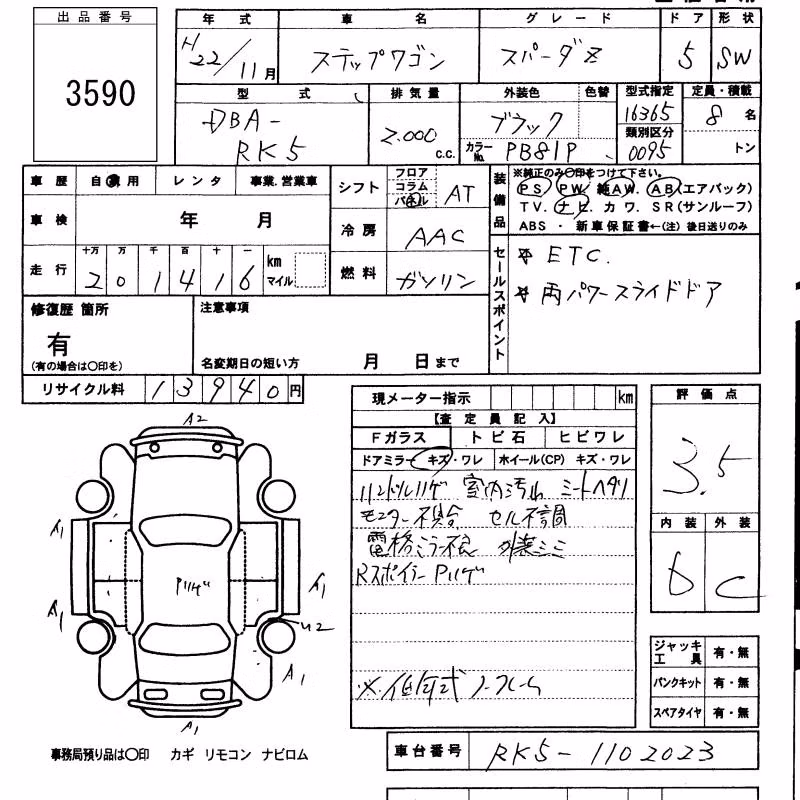 出品番号
3590
年式 車名 グレード ドア 形状
H22/11月 ステップワゴン スパーダZ 5 SW
型式 排気量 外装色 色替 型式指定 定員・積載
DBA-RK5 2.000 c.c. ブラック 16365 8名
カラーNo. PB81P 類別区分 0095 トン
車歴 自家用 レンタ 事業.営業車
車検 年 月
走行 十万 万 千 百 十 一
201416 km マイル
シフト フロア コラム パネル AT
冷房 AAC
燃料 ガソリン
装備品 ※純正のみ〇印をつけて下さい。
PS PW 純AW. AB(エアバック)
TV. ナビ. カワ. SR(サンルーフ)
ABS ・ 新車保証書←(注) 後日送りのみ
セールスポイント
ETC.
両パワースライドドア
修復歴 箇所
有
(有の場合は〇印を)
注意事項
名変期日の短い方 月 日まで
リサイクル料 13940円
現メーター指示 km
【査定員記入】
Fガラス トビ石 ヒビワレ
ドアミラー キズ・ワレ ホイール(CP) キズ・ワレ
ハンドルハゲ 室内汚れ シートヘタリ
モニター不具合 セル不調
電格ミラー不良 外装ミミ
Rスポイラー Pハゲ
※低年式ノークレーム
評価点
3.5
内装 外装
D C
ジャッキ 工具 有・無
パンクキット 有・無
スペアタイヤ 有・無
A2
A1
A1
Pハゲ
A1
U2
A1
A1
事務局預り品は〇印 カギ リモコン ナビロム
車台番号 RK5-1102023